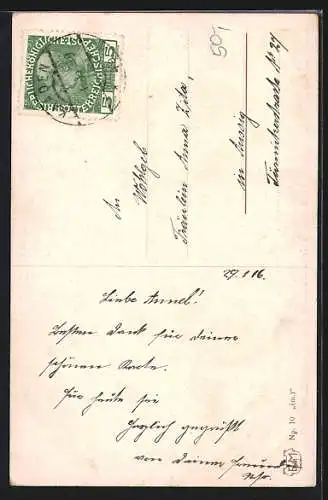 50
KAISERLICHE KÖNIGLICHE ÖSTERREICHISCHE POST
5 5
An
Wohlgeb
Fräulein Anna Zila,
in Aussig
No 27
27.1 16.
Liebe Annel!
Besten Dank für deine
schönen Karte.
Für heute sei
herzlich gegrüßt
von Deiner Freundin
Np. 10 „fm.I"